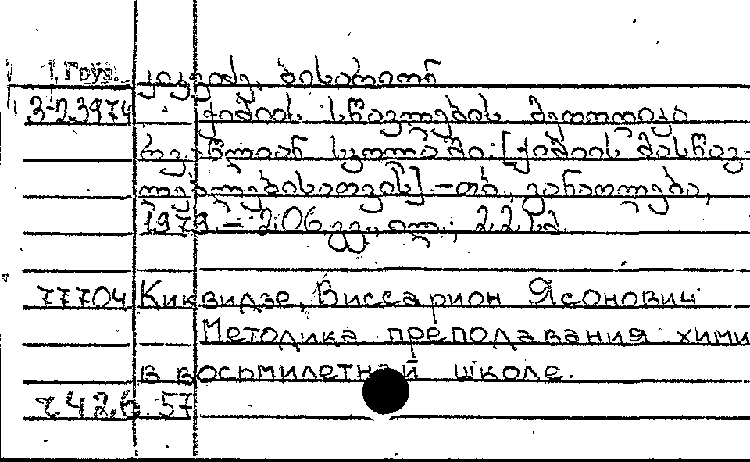 1. Груз.
კიკვიძე, ბისარიონ
3-23974 ქიმიის სწავლების მეთოდიკა
რვაწლიან სკოლაში: [ქიმიის მასწავ-
ლებლებისათვის] – თბ., განათლება,
1979. – 206 გვ., ილ.; 22 სმ.
77704 Киквидзе, Виссарион Ясонович
Методика преподавания хими
в восьмилетней школе.
г42.6.57